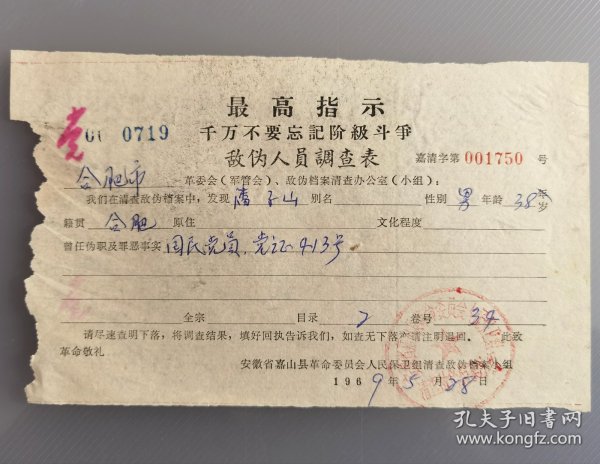 最高指示
千万不要忘記阶級斗爭
党 0719
敌伪人員調查表 嘉清字第 001750 号
合肥市 革委会（军管会）、敌伪档案清查办公室（小组）：
我们在清查敌伪档案中，发现 子山 别名 性别 男 年龄 38岁
籍贯 合肥 原住 文化程度
曾任伪职及罪恶事实 国民党员，党证9413号
全宗 目录 2 卷号 34
请尽速查明下落，将调查结果，填好回执告诉我们，如查无下落亦请注明退回。此致
革命敬礼
安徽省嘉山县革命委员会人民保卫组清查敌伪档案小组
1969年5月28日
孔夫子旧书网
www.kongfz.com